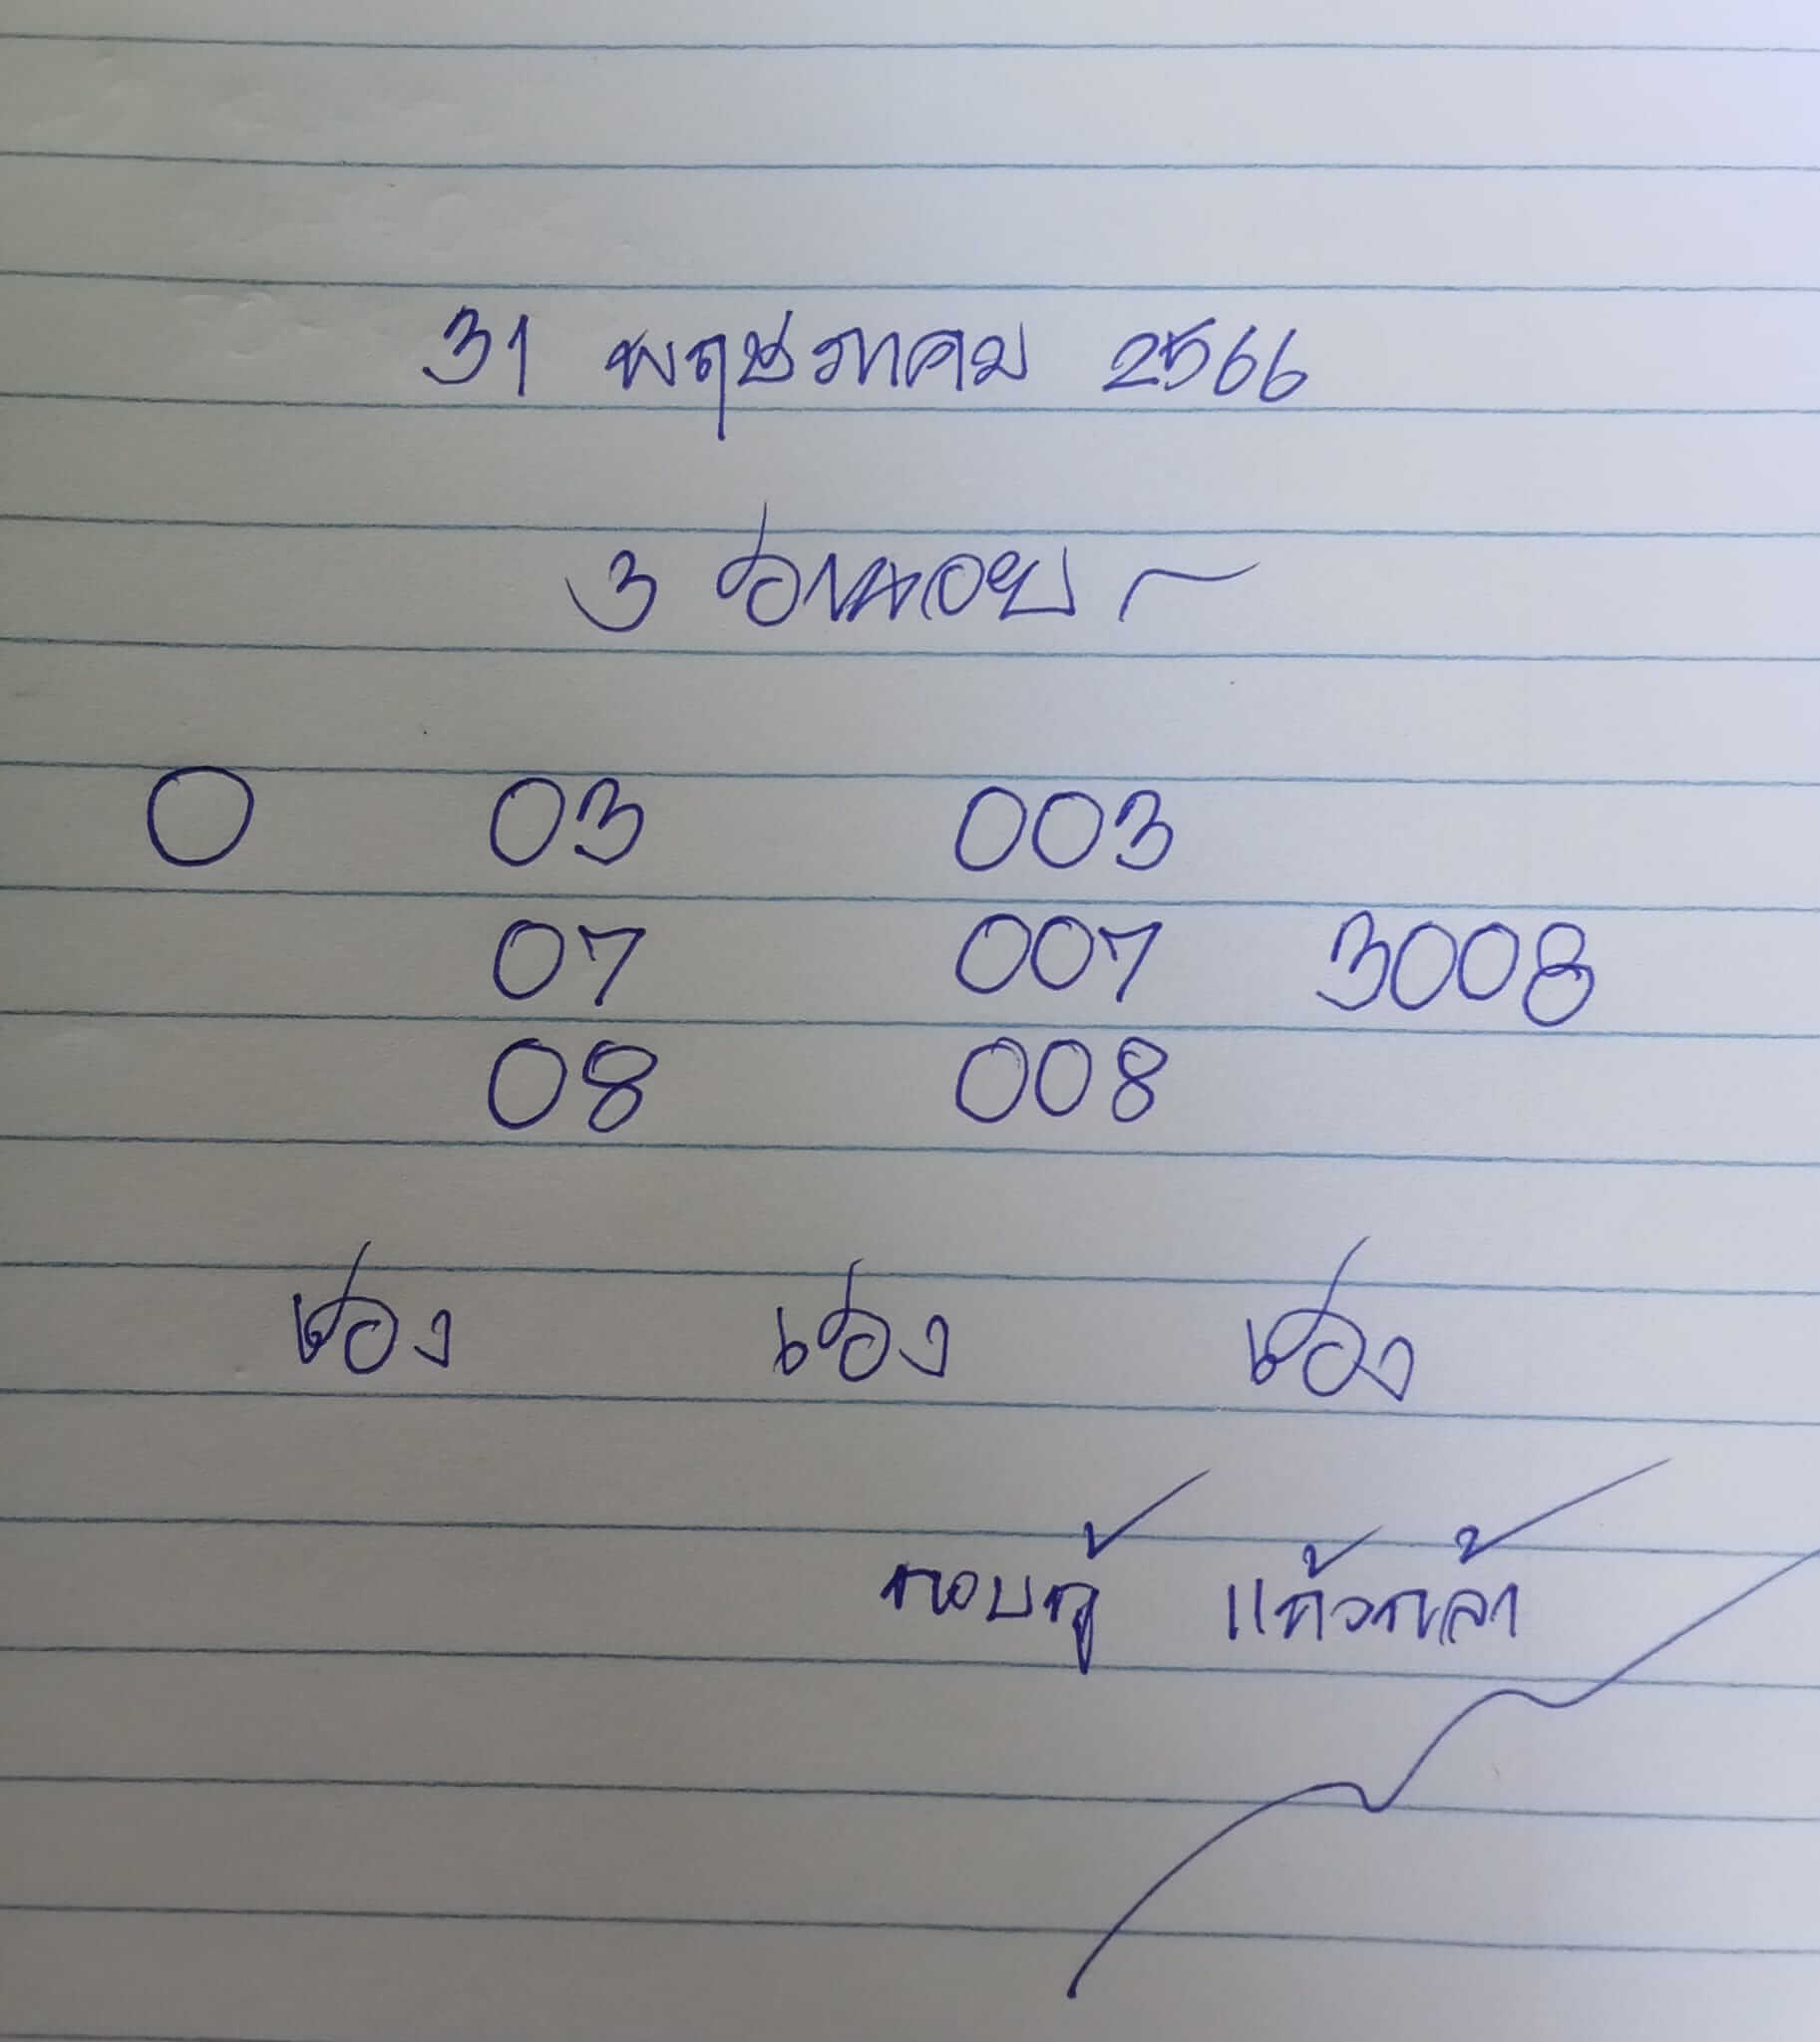 31 พฤษภาคม 2566
3 ช่อง
0 03 003
07 007 3008
08 008
ช่อง ช่อง ช่อง
กอบกู้ แก้วกล้า